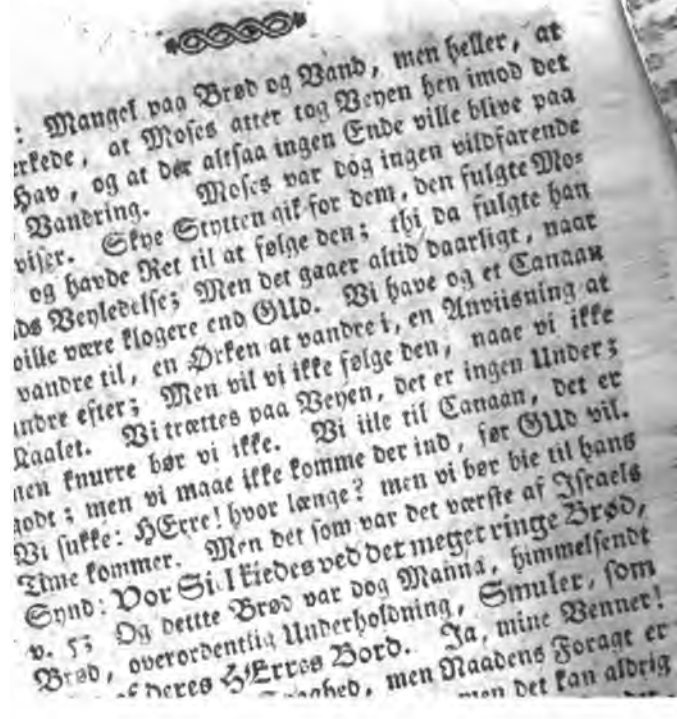 : Mangel paa Brød og Vand, men heller, at
erkede, at Moses atter tog Veyen hen imod det
Hav, og at der altsaa ingen Ende ville blive paa
Vandring. Moses var dog ingen vildfarende
viser. Skye Støtten gik for dem, den fulgte Mo-
og havde Ret til at følge den; thi da fulgte han
ds Veyledelse; Men det gaaer altid daarligt, naar
ville være klogere end GUD. Vi have og et Canaan
vandre til, en Ørken at vandre i, en Anviisning at
andre efter; Men vil vi ikke følge den, naae vi ikke
Maalet. Vi trættes paa Veyen, det er ingen Under;
men knurre bør vi ikke. Vi iile til Canaan, det er
godt; men vi maae ikke komme der ind, før GUD vil.
Vi sukke: HErre! hvor længe? men vi bør bie til hans
Time kommer. Men det som var det værste af Israels
Synd: Vor Siel kiedes ved det meget ringe Brød,
v. 5; Og dette Brød var dog Manna, himmelsendt
Brød, overordentlig Underholdning, Smuler, som
af deres HErres Bord. Ja, mine Venner!
men Naadens Foragt er
men det kan aldrig